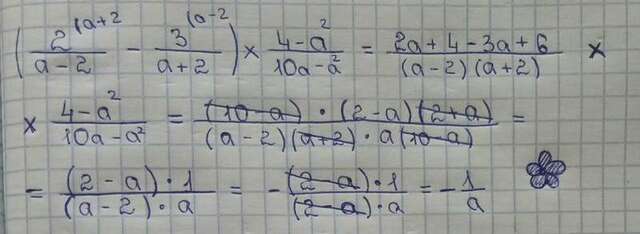 (2^(a+2/a-2 - 3^(a-2/a+2) × 4-a²/10a-a² = 2a+4-3a+6/(a-2)(a+2) ×
× 4-a²/10a-a² = (10-a)·(2-a)(2+a)/(a-2)(a+2)·a(10-a) =
= (2-a)·1/(a-2)·a = -(2-a)·1/(2-a)·a = -1/a